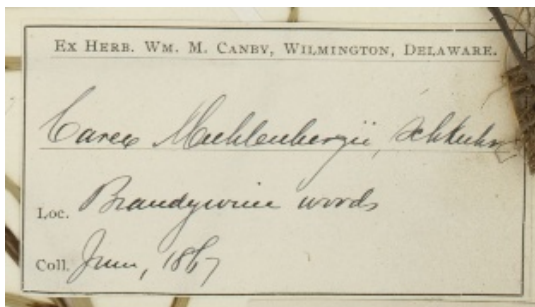 EX HERB. WM. M. CANBY, WILMINGTON, DELAWARE.
Carex Muhlenbergii, Schkuhr
Loc. Brandywine woods
Coll. June, 1867